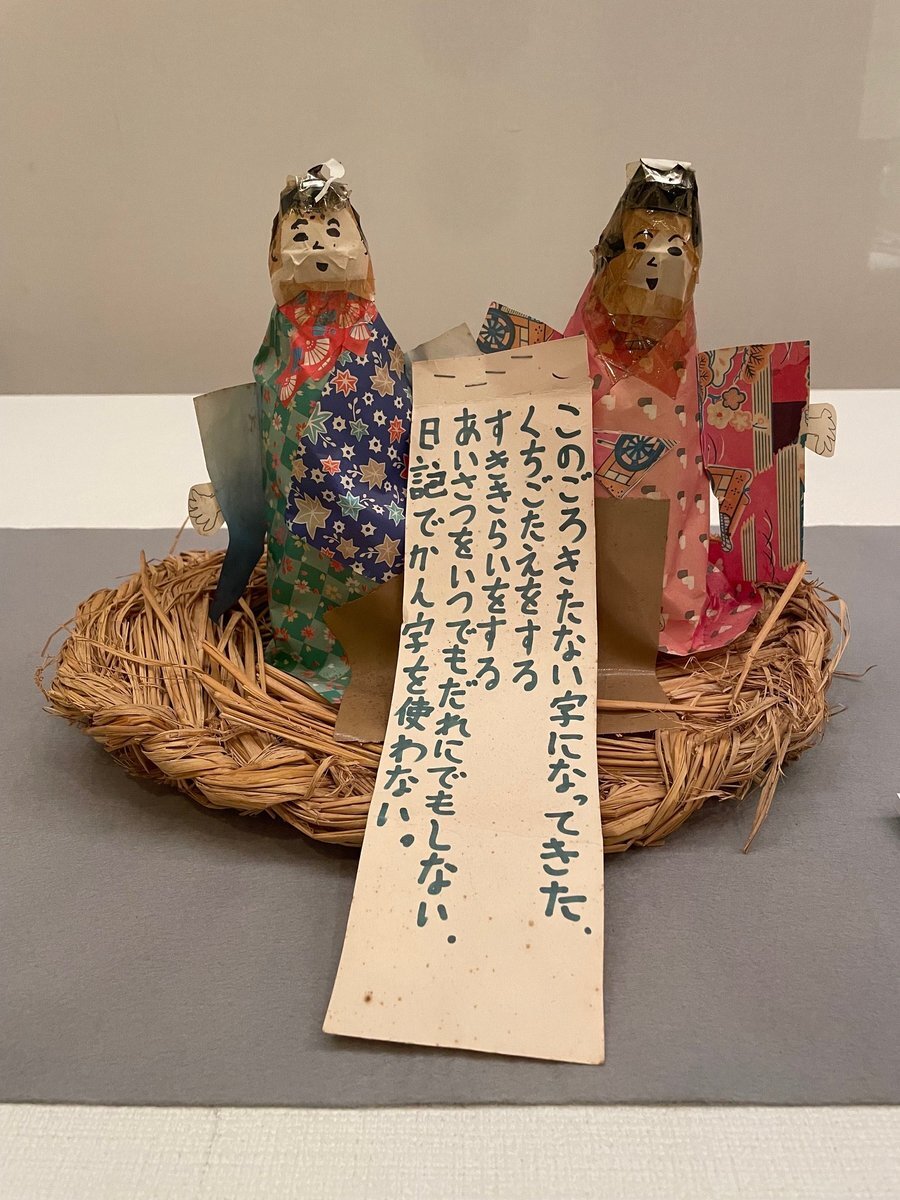 このごろきたない字になってきた.
くちごたえをする
すききらいをする
あいさつをいつでもだれにでもしない.
日記でかん字を使わない。